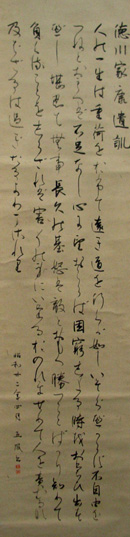 徳川家康遺訓
人の一生は重荷を負て遠き道を行くが如しいそぐべからず不自由を
つねとおもへば不足なし心に望おこらば困窮したる時を思ひ出す
べし堪忍は無事長久の基怒は敵とおもへ勝つことばかり知りて
負くることを知らざれば害其身にいたるおのれをせめて人をせむるな
及ばざるは過ぎたるよりまされり
昭和